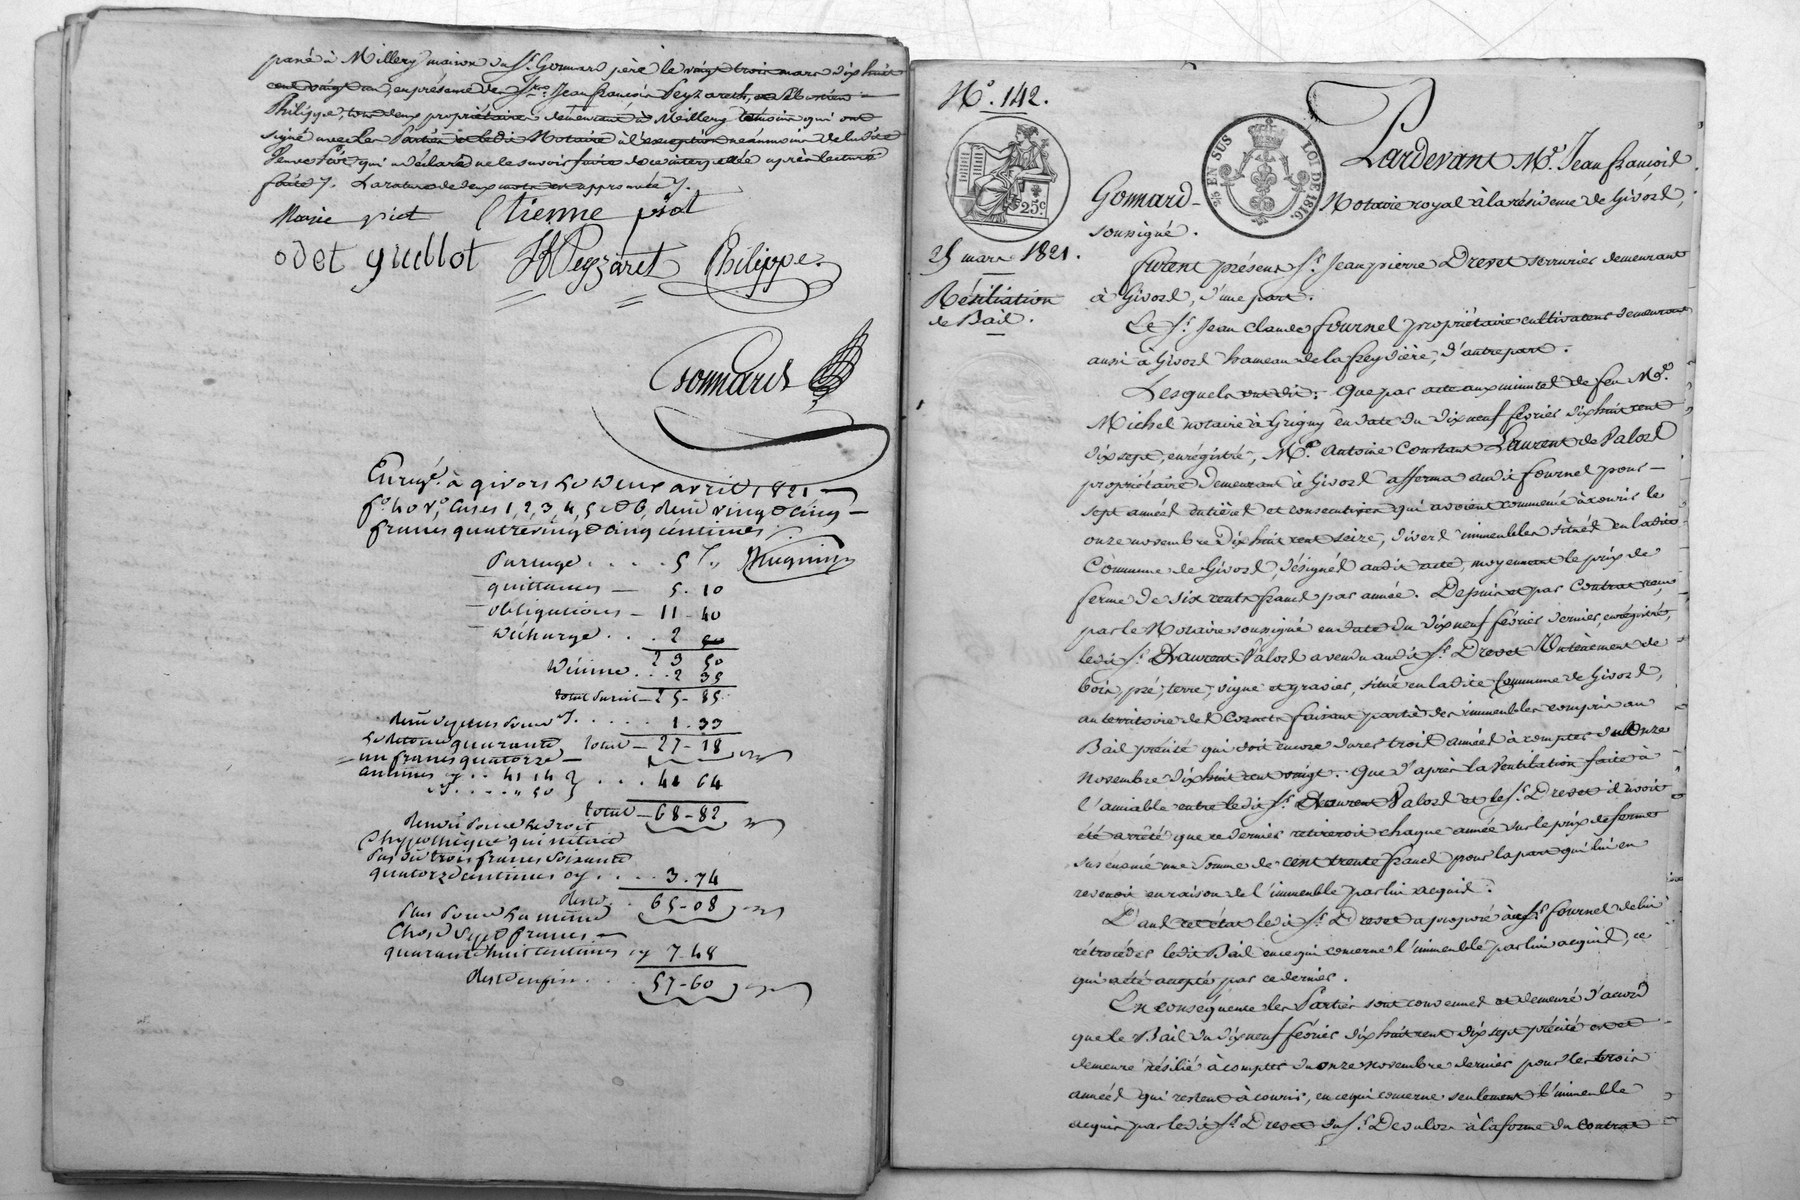 passé à Millery maison du Sr. Gonnard père le vingt trois mars dix huit
cent vingt un, en présence de Srs. Jean françois Peyzaret, et
Philippe, tous deux propriétaires demeurant à Millery témoins qui ont
signé avec les Parties et ledit Notaire à l'exception néanmoins de ladite
Veuve qui a déclaré ne le savoir faire de ce interpellée après lecture
faite /. La rature de deux mots est approuvée /.
Marie piot Etienne piot
odet guillot JF Peyzaret Philippe
Gonnard
Enregé. à givors le deux avril 1821
fo. 40 Vo. Cases 1, 2, 3, 4, 5 et 6, reçu vingt cinq
francs quatre vingt cinq centimes /.
Partage .... 5 "
quittances — 5. 10
obligations — 11 - 40
décharge ... 2
23 50
Décime ... 2 35
total du rôle — 25 - 85
1. 33
quarante total — 27 - 18
un francs quatorze —
centimes cy .. 41 14
50 .... 41 64
total — 68 - 82
pour le droit
d'hypothèque qui n'était
pas dû trois francs soixante
quatorze centimes cy .... 3. 74
reste . 65 - 08
Plus pour la même
chose sept francs
quarante huit centimes cy 7 - 48
reste enfin .... 57 - 60
No. 142.
25c
25 mars 1821.
Résiliation
de Bail.
2/10 EN SUS LOI DE 1816.
Pardevant Me. Jean françois
Gonnard - Notaire royal à la résidence de Givors,
soussigné.
furent présens Sr. Jean pierre Drevet serrurier demeurant
à Givors, d'une part.
Le Sr. Jean Claude fournel propriétaire cultivateur demeurant
aussi à Givors hameau de la freydière, d'autre part.
Lesquels ont dit: Que par acte aux minutes de feu Me.
Michel notaire à Grigny en date du dix neuf février dix huit cent
dix sept, enrégistré, Mr. Antoine Constant Laurent de Valors
propriétaire demeurant à Givors afferma audit fournel pour —
sept années entières et consécutives qui avoient commencé à courir le
onze novembre dix huit cent seize, divers immeubles situés en ladite
Commune de Givors, désignés audit acte, moyennant le prix de
ferme de six cents francs par année. Depuis et par Contrat reçu
par le Notaire soussigné en date du dix neuf février dernier, enrégistré,
ledit Sr. Laurent Valors a vendu audit Sr. Drevet Un tènement de
bois, pré, terre, vigne et gravier, situé en ladite Commune de Givors,
au territoire des Cornets faisant partie des immeubles compris au
Bail précité qui doit encore durer trois années à compter du Onze
novembre dix huit cent vingt. Que d'après la Ventilation faite à
l'amiable entre ledit Sr. Laurent Valors et le Sr. Drevet il avoit
été arrêté que ce dernier retireroit chaque année sur le prix de ferme
sus énoncé une somme de cent trente francs pour la part qui lui en
revenoit en raison de l'immeuble par lui acquis.
Dans cet état ledit Sr. Drevet a proposé au Sr. fournel de lui
rétrocéder ledit Bail en ce qui concerne l'immeuble par lui acquis, ce
qui a été accepté par ce dernier.
En conséquence les Parties sont convenues et demeuré d'accord
que le Bail du dix neuf février dix huit cent dix sept précité est et
demeure résilié à compter du onze novembre dernier pour les trois
années qui restent à courir, en ce qui concerne seulement l'immeuble
acquis par ledit Sr. Drevet du Sr. Devalors à la forme du contrat